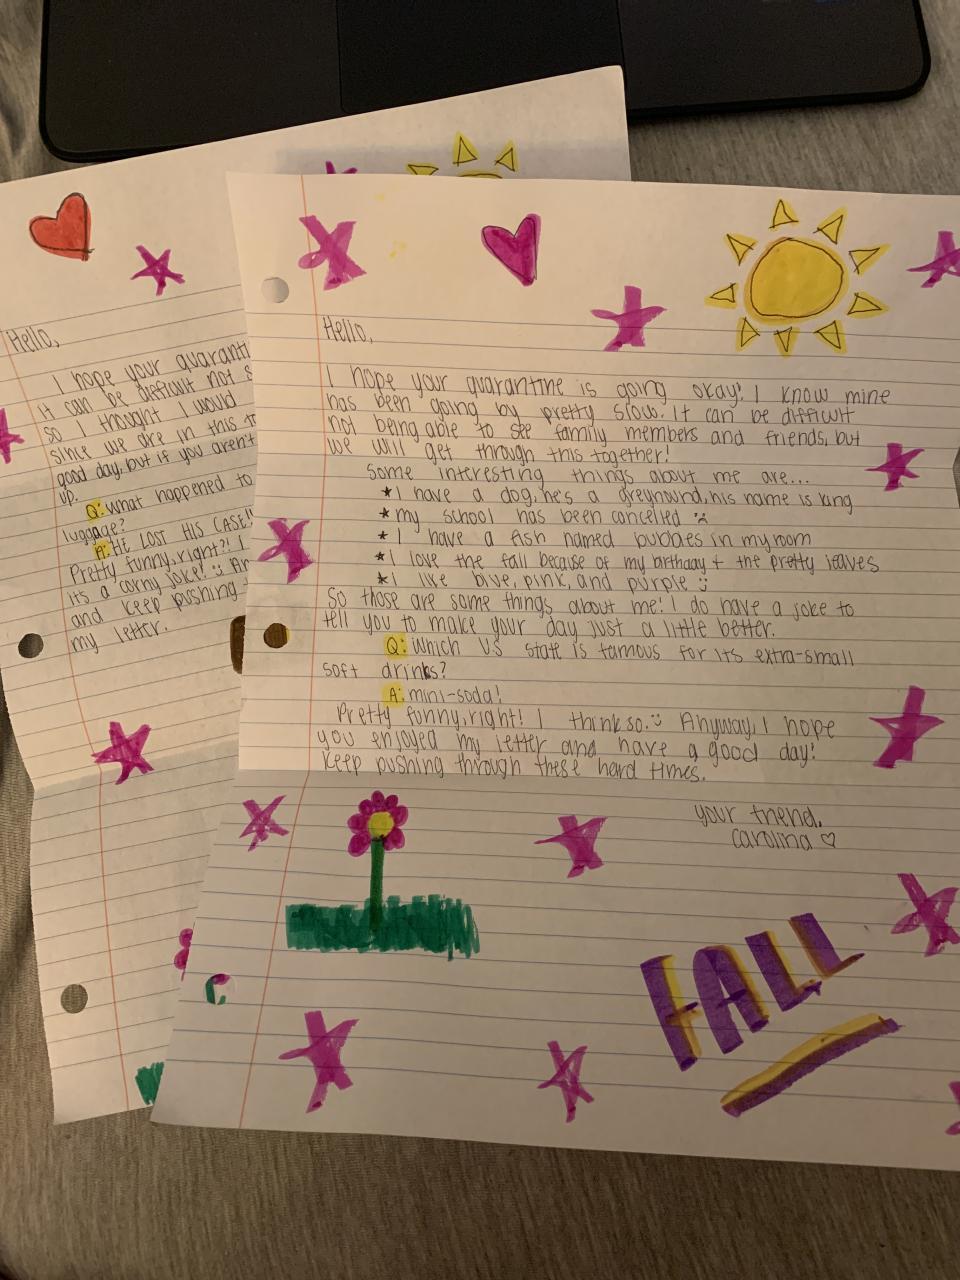 Hello,
I hope your quaranti
it can be difficult not s
so I thought I would
since we are in this to
good day, but if you aren't
up.
Q: What happened to
luggage?
A: HE LOST HIS CASE!!
Pretty funny, right?! I
it's a corny joke! :) An
and keep pushing
my letter.
Hello,
I hope your quarantine is going okay! I know mine
has been going by pretty slow. It can be difficult
not being able to see family members and friends, but
we will get through this together!
Some interesting things about me are...
★ I have a dog, he's a greyhound, his name is King
★ my school has been cancelled :(
★ I have a fish named bubbles in my room
★ I love the fall because of my birthday + the pretty leaves
★ I like blue, pink, and purple :)
So those are some things about me! I do have a joke to
tell you to make your day just a little better.
Q: Which US state is famous for its extra-small
soft drinks?
A: mini-soda!
Pretty funny, right! I think so. :) Anyway, I hope
you enjoyed my letter and have a good day!
Keep pushing through these hard times.
your friend,
Carolina ♡
FALL